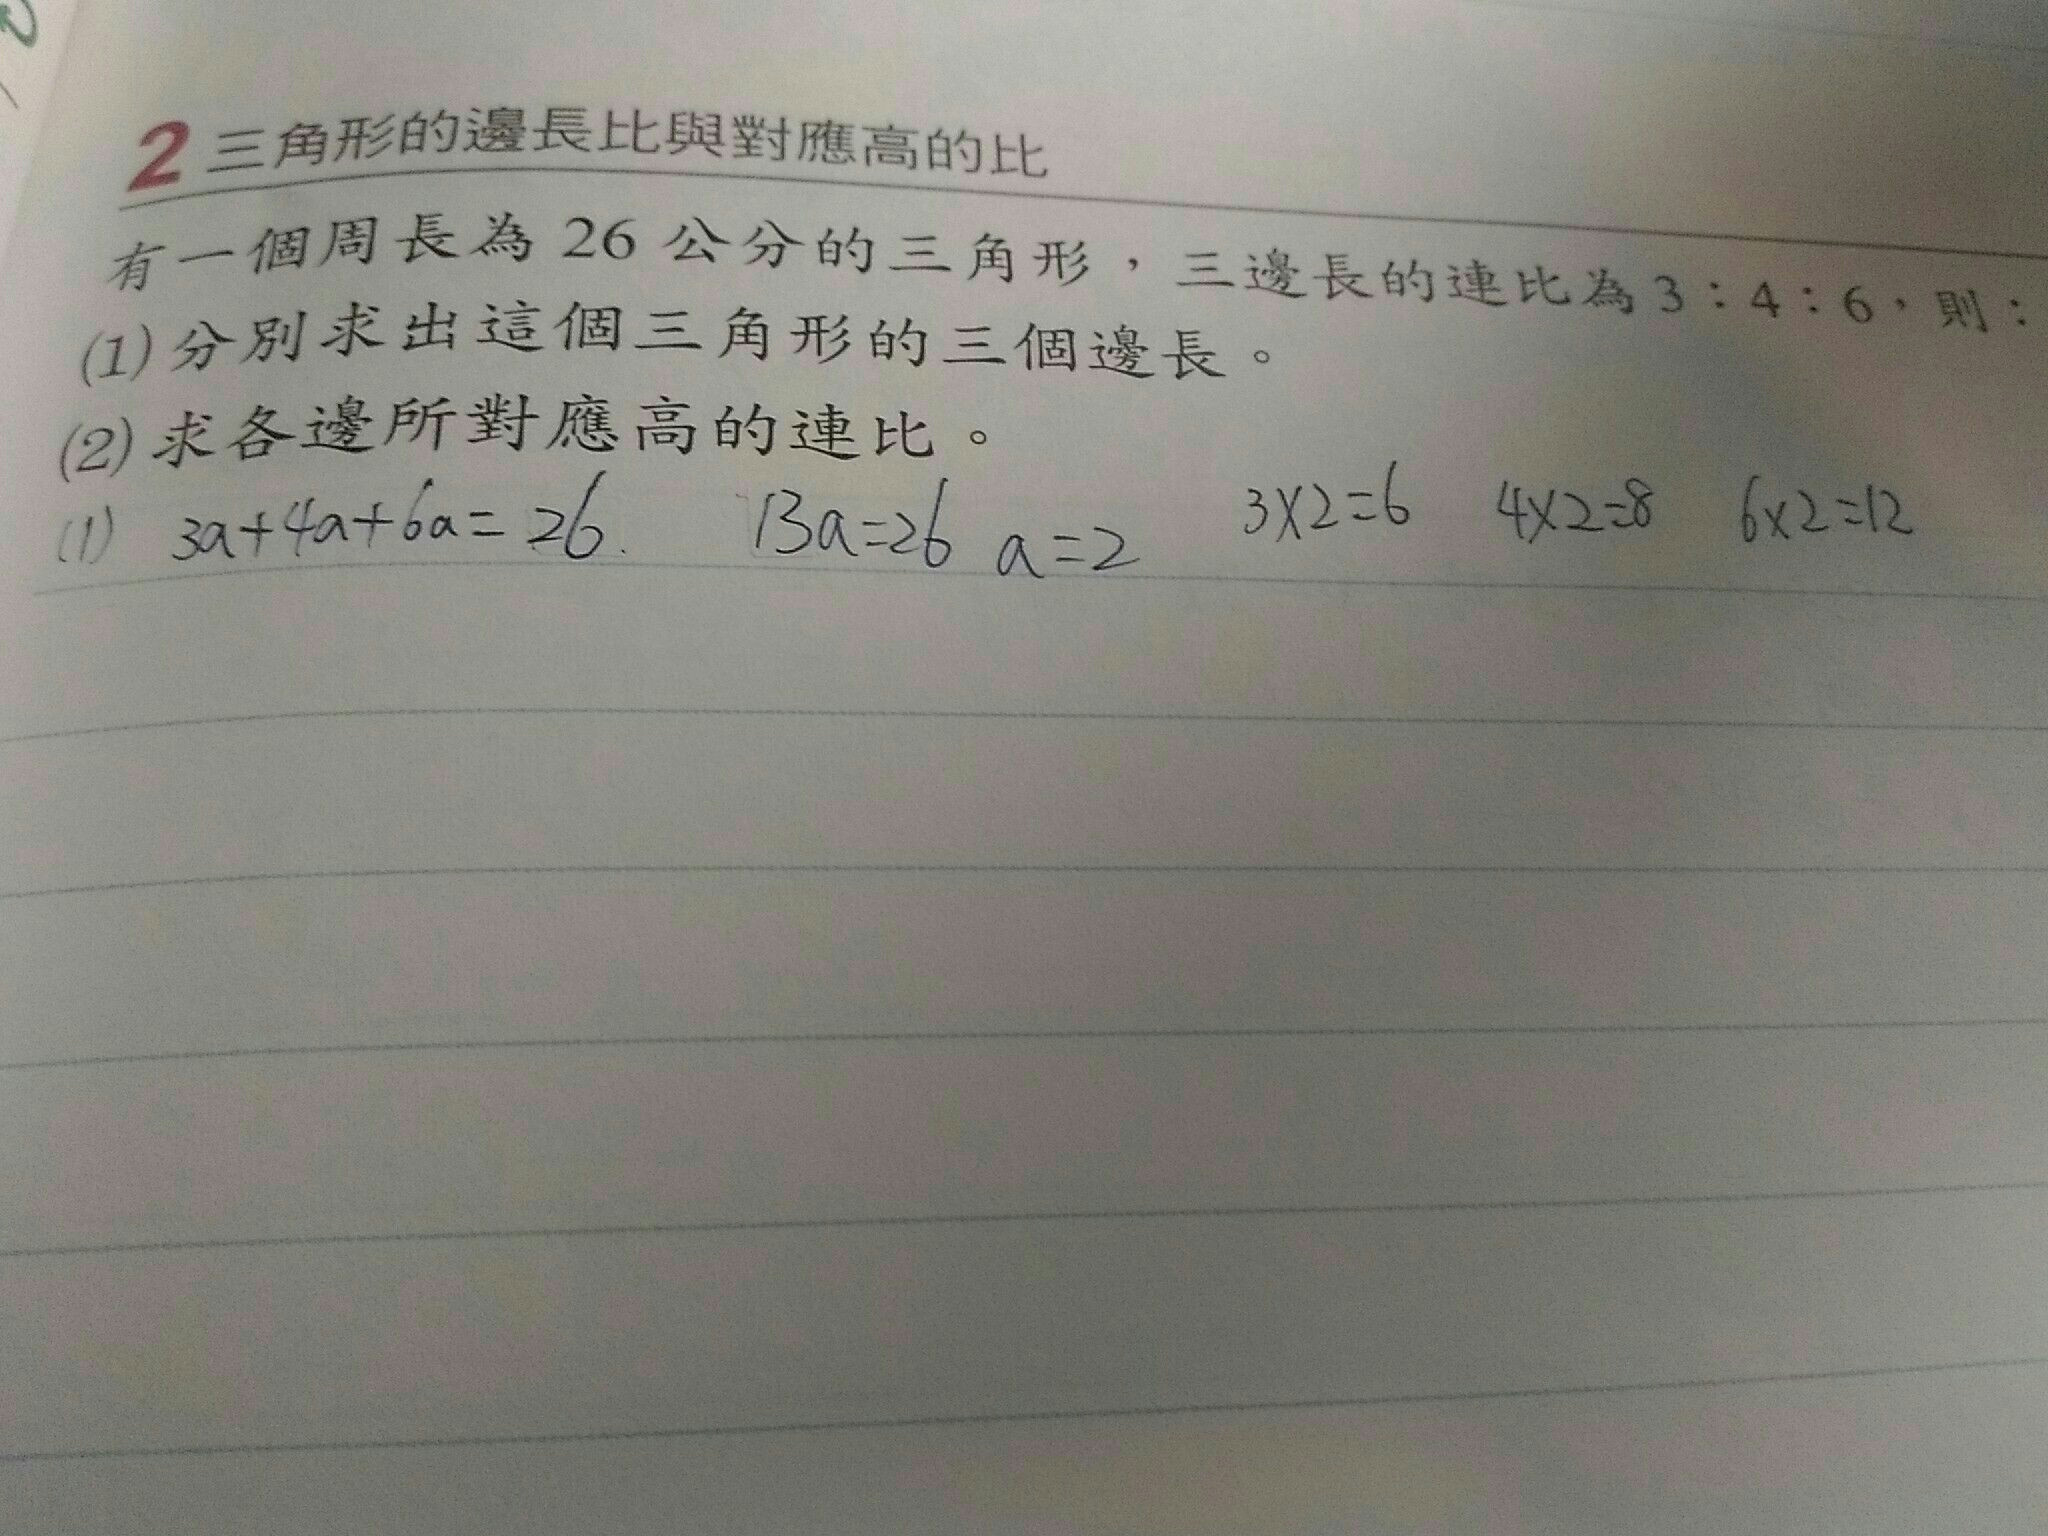 2 三角形的邊長比與對應高的比
有一個周長為 26 公分的三角形，三邊長的連比為 3：4：6，則：
(1) 分別求出這個三角形的三個邊長。
(2) 求各邊所對應高的連比。
(1) 3a+4a+6a=26. 13a=26 a=2 3×2=6 4×2=8 6×2=12